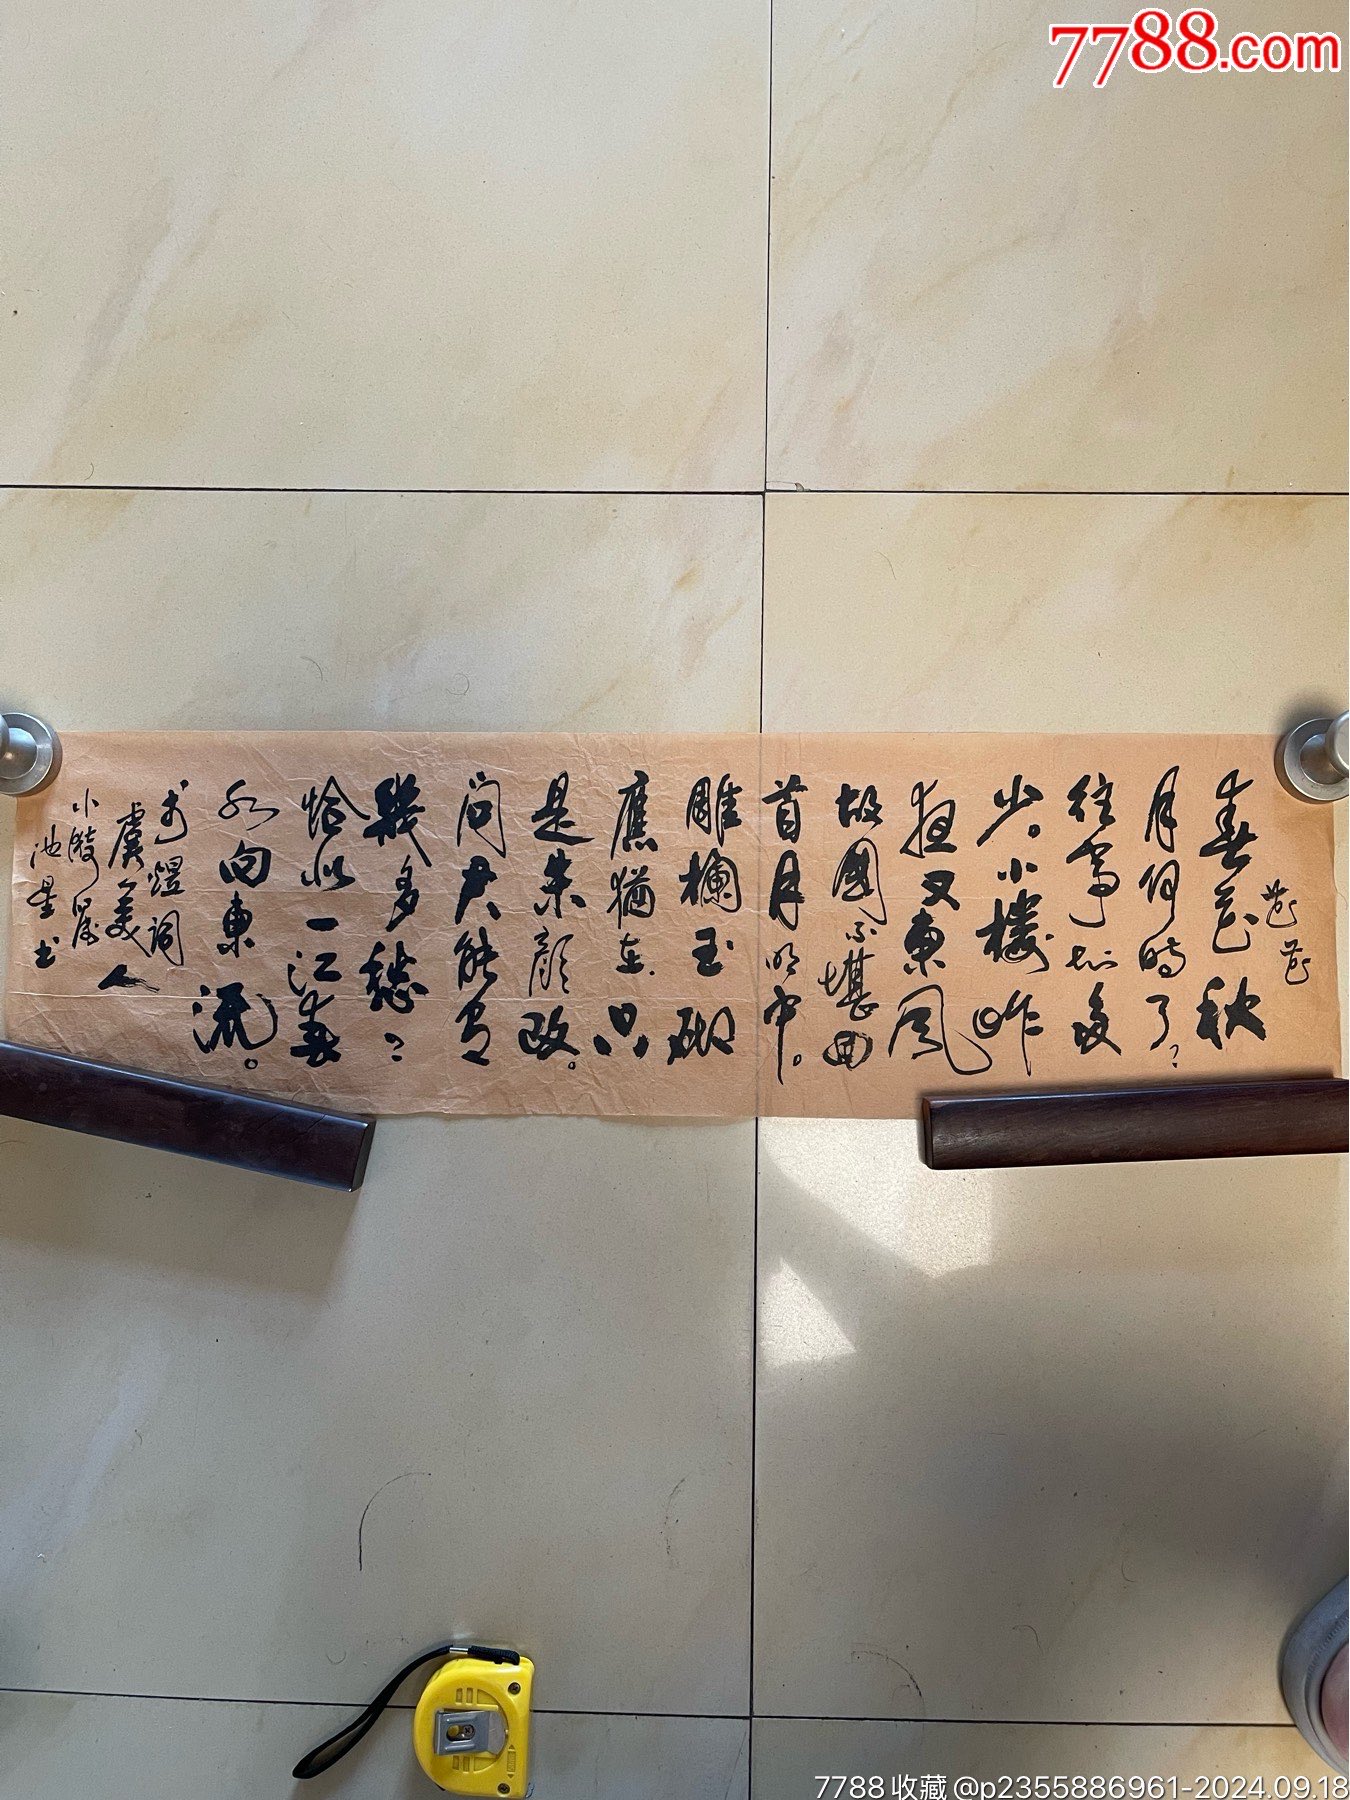 7788.com
春花秋
月何時了?
往事知多
少。小樓昨
夜又東風
故國不堪回
首月明中。
雕欄玉砌
應猶在.只
是朱顔改。
问君能有
幾多愁?
恰似一江春
水向東流。
李煜詞
虞美人
小
池星书
7788收藏@p2355886961-2024.09.18